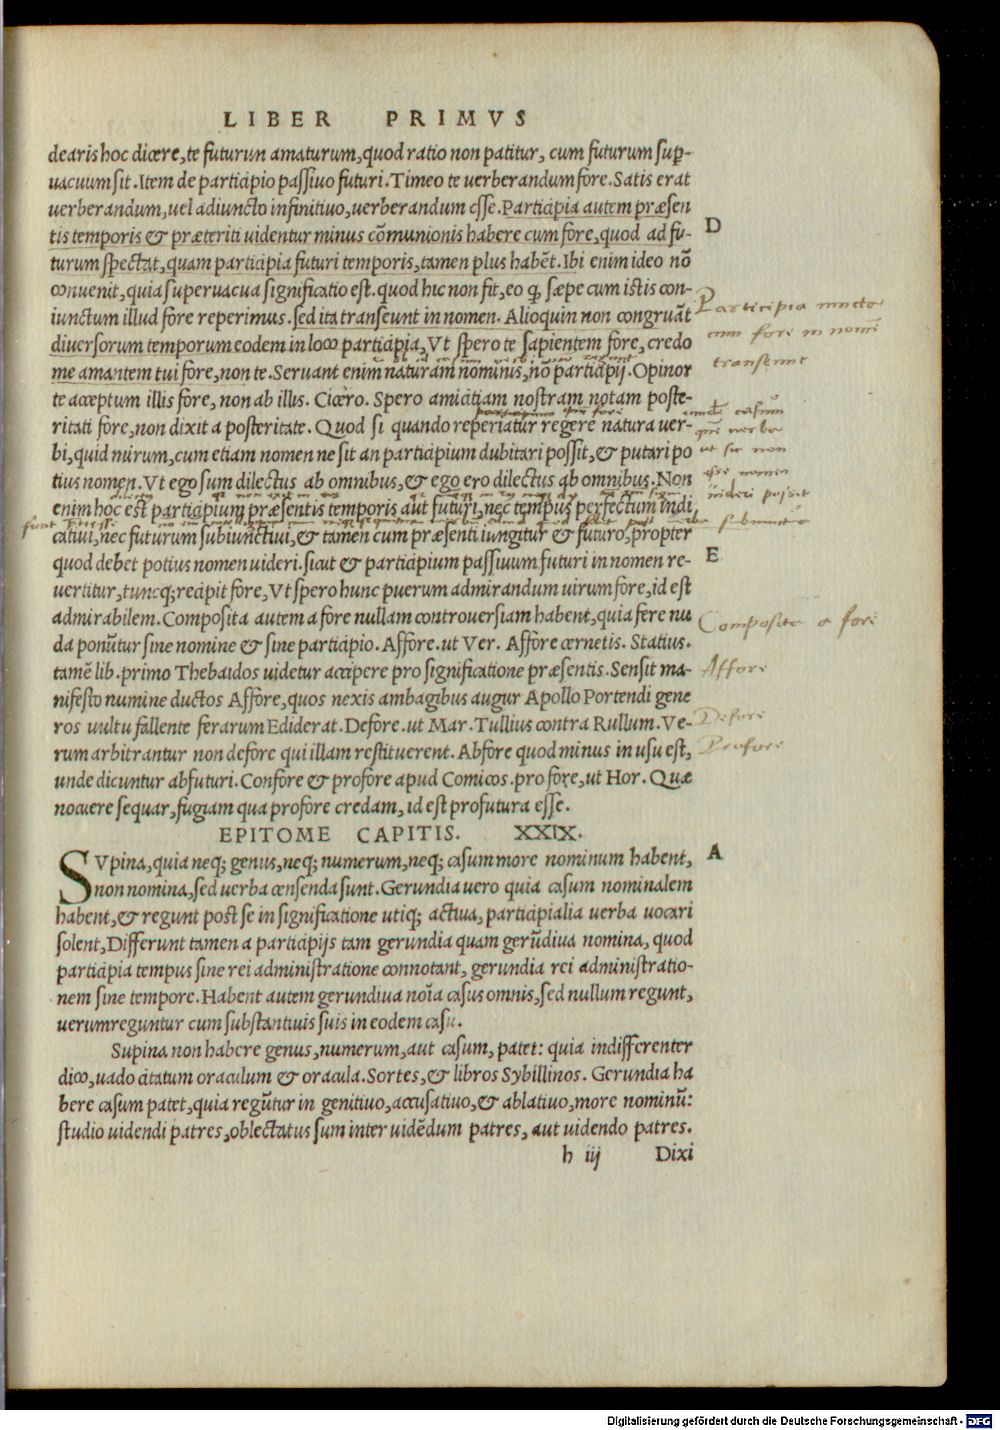 LIBER PRIMVS
dearis hoc dicere, te futurun amaturum, quod ratio non patitur, cum futurum sup-
uacuum sit. Item de participio passiuo futuri. Timeo te uerberandum fore. Satis erat
uerberandum, uel adiuncto infinitiuo, uerberandum esse. Participia autem præsen
tis temporis & præteriti uidentur minus cōmunionis habere cum fore, quod ad fu-
D
turum spectat, quam participia futuri temporis, tamen plus habēt. Ibi enim ideo nō
conuenit, quia superuacua significatio est. quod hic non fit, eo ꝙ sæpe cum istis con-
iunctum illud fore reperimus. sed ita transeunt in nomen. Alioquin non congruāt
Participia iuncta
diuersorum temporum eodem in loco participia, Vt spero te sapientem fore, credo
cum fore in nomē
me amantem tui fore, non te. Seruant enim naturam nominis, nō participij. Opinor
transeunt
te acceptum illis fore, non ab illis. Cicero. Spero amicitiam nostram notam poste-
ritati fore, non dixit a posteritate. Quod si quando reperiatur regere natura uer-
bi, quid mirum, cum etiam nomen ne sit an participium dubitari possit, & putari po
ut sic non
tius nomen. Vt ego sum dilectus ab omnibus, & ego ero dilectus ab omnibus. Non
esse nomen
enim hoc est participium præsentis temporis aut futuri, nec tempus perfectum indi
uideri possit
catiui, nec futurum subiunctiui, & tamen cum præsenti iungitur & futuro, propter
quod debet potius nomen uideri. sicut & participium passiuum futuri in nomen re-
E
uertitur, tuncq; recipit fore, Vt spero hunc puerum admirandum uirum fore, id est
admirabilem. Composita autem a fore nullam controuersiam habent, quia fere nu
Composita a fore
da ponūtur sine nomine & sine participio. Affore. ut Ver. Affore cernetis. Statius.
tamē lib. primo Thebaidos uidetur accipere pro significatione præsentis. Sensit ma-
Affore
nifesto numine ductos Affore, quos nexis ambagibus augur Apollo Portendi gene
ros uultu fallente ferarum Ediderat. Defore. ut Mar. Tullius contra Rullum. Ve-
Defore
rum arbitrantur non defore qui illam restituerent. Abfore quod minus in usu est,
Profore
unde dicuntur abfuturi. Confore & profore apud Comicos. pro fore, ut Hor. Quæ
nocuere sequar, fugiam qua profore credam, id est profutura esse.
EPITOME CAPITIS. XXIX.
SVpina, quia neq; genus, neq; numerum, neq; casum more nominum habent,
A
non nomina, sed uerba censenda sunt. Gerundia uero quia casum nominalem
habent, & regunt post se in significatione utiq; actiua, participialia uerba uocari
solent, Differunt tamen a participijs tam gerundia quam gerūdiua nomina, quod
participia tempus sine rei administratione connotant, gerundia rei administratio-
nem sine tempore. Habent autem gerundiua noīa casus omnis, sed nullum regunt,
uerum reguntur cum substantiuis suis in eodem casu.
Supina non habere genus, numerum, aut casum, patet: quia indifferenter
dico, uado citatum oraculum & oracula. Sortes, & libros Sybillinos. Gerundia ha
bere casum patet, quia regūtur in genitiuo, accusatiuo, & ablatiuo, more nominū:
studio uidendi patres, oblectatus sum inter uidēdum patres, aut uidendo patres.
h iij Dixi
Digitalisierung gefördert durch die Deutsche Forschungsgemeinschaft - DFG